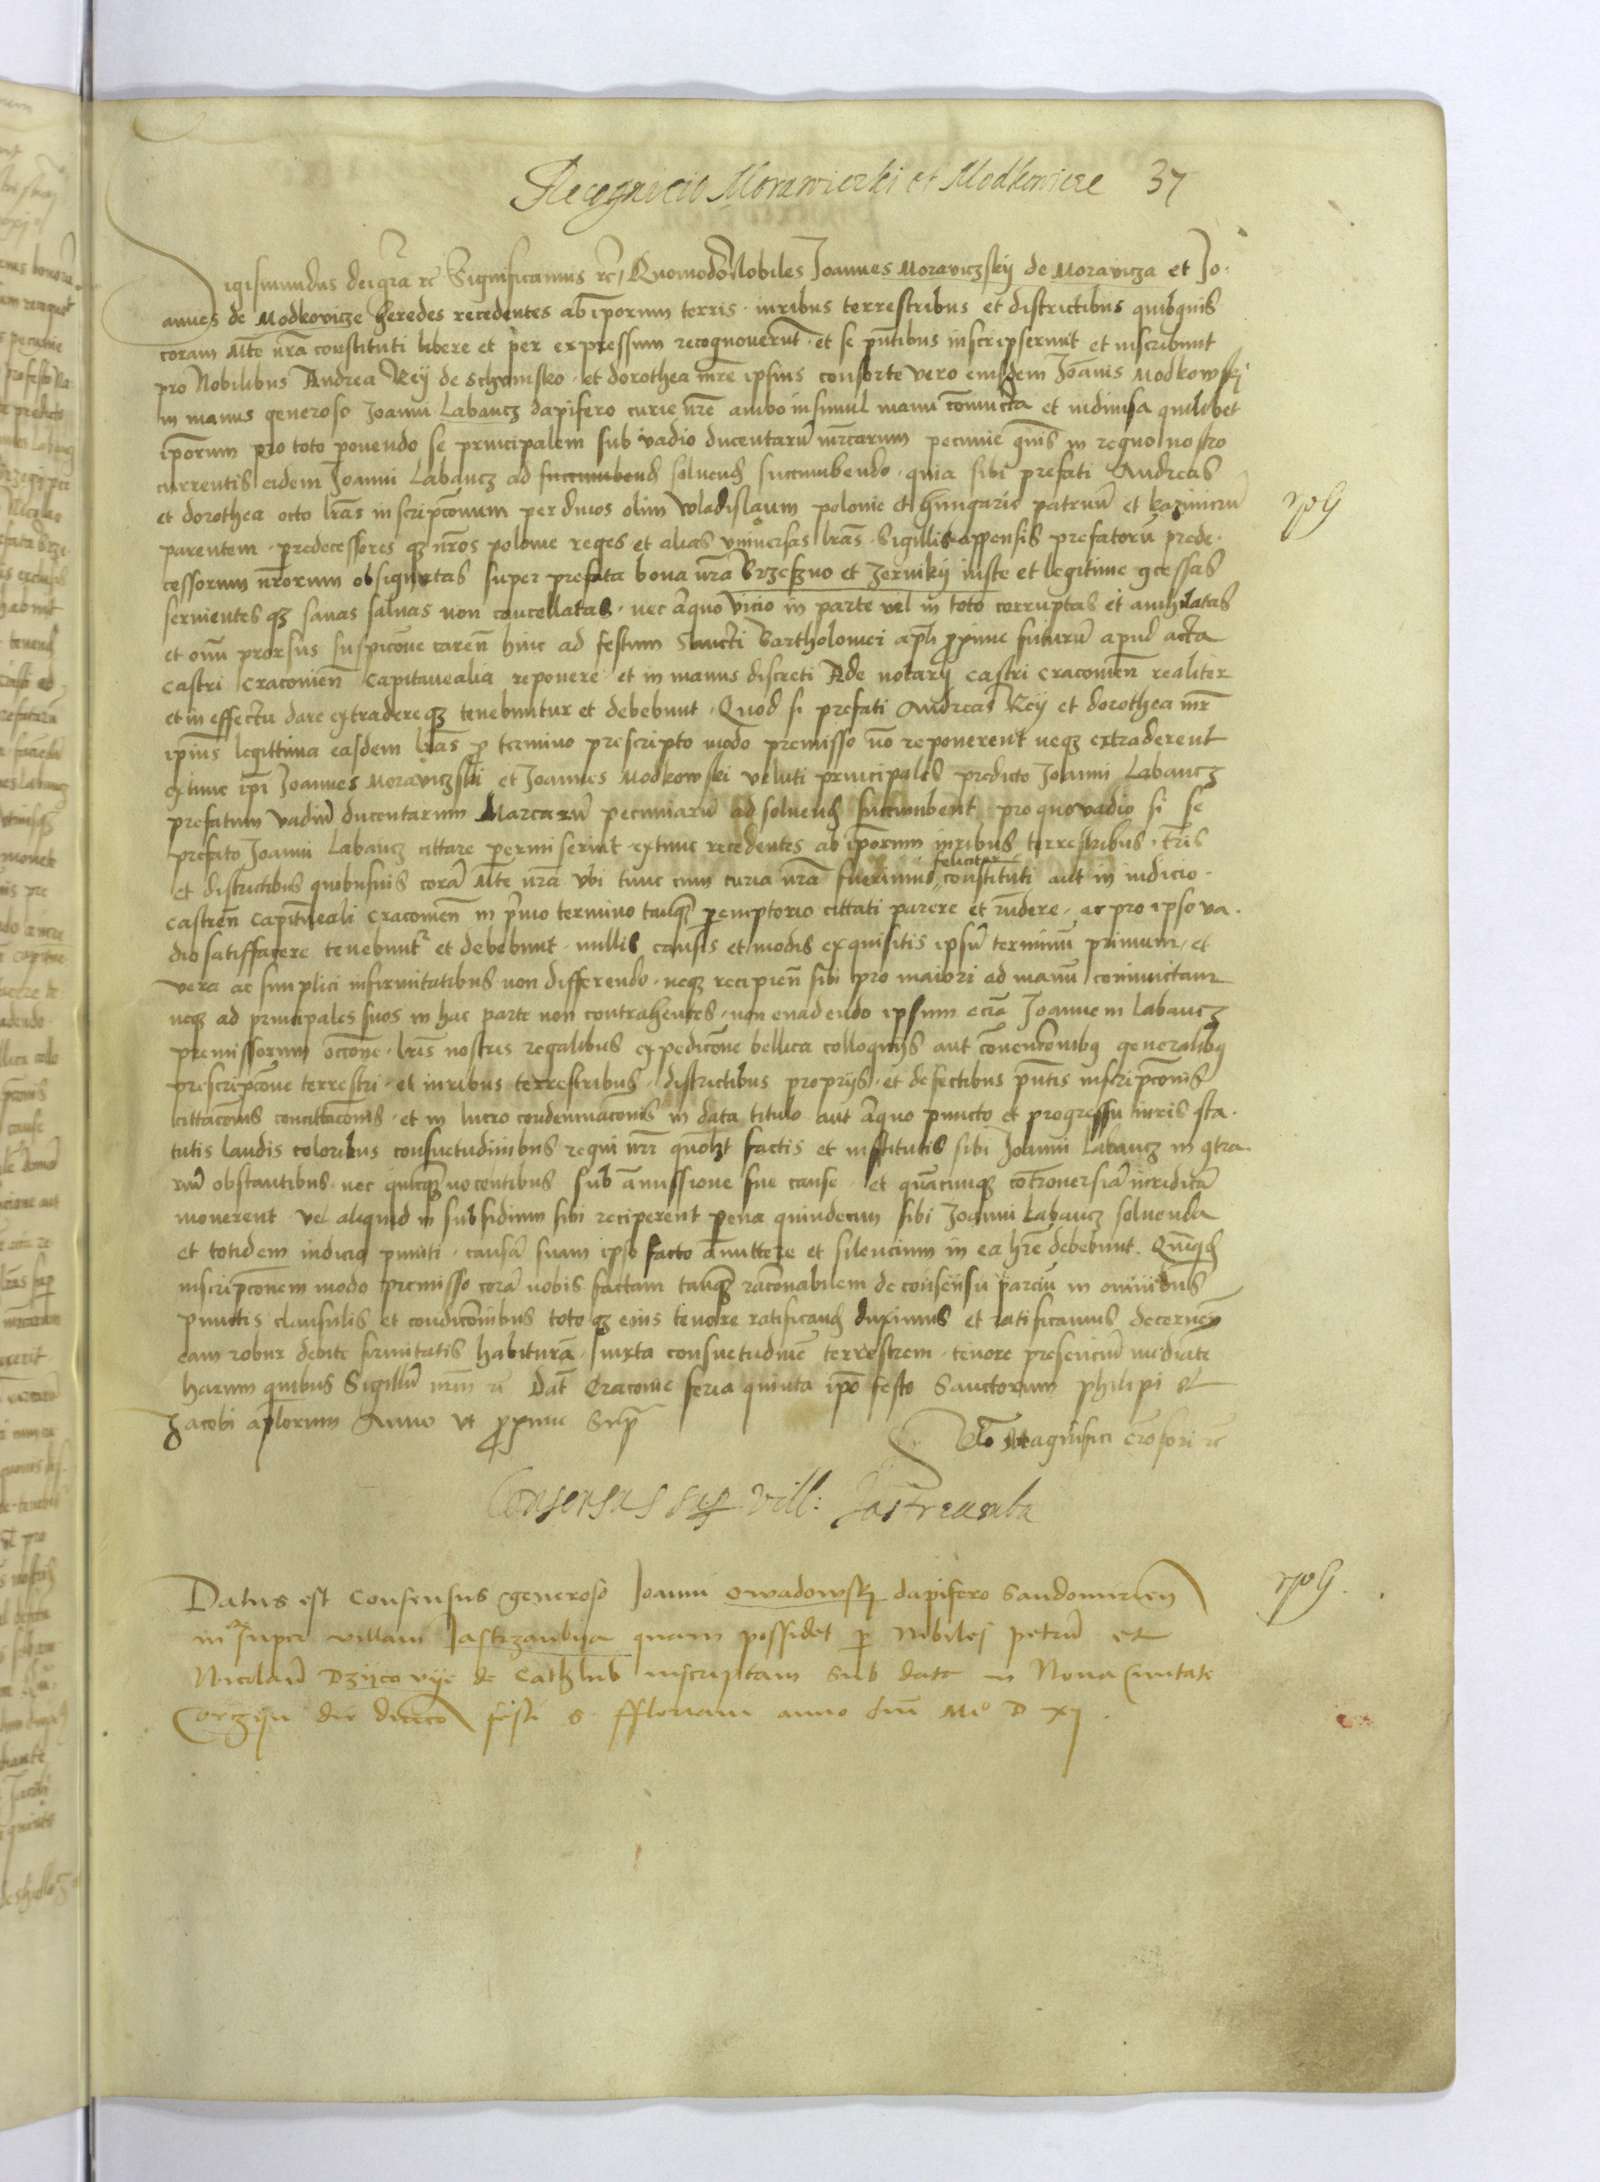 Recognicio Morawiczki et Modkowicze 37
Sigismundus dei gra rc Significamus rc Quomodo Nobiles Joannes Moraviczskij de Moravicza et Jo-
annes de Modkovicze heredes recedentes ab iporum terris iuribus terrestribus et districtibus quibusuis
coram Mte nra constituti libere et per expressum recognoverunt et se pntibus inscripserunt et inscribunt
pro Nobilibus Andrea Reij de Schumsko et dorothea mre ipsius consorte vero eiusdem Joannis Modkowskj
in manus generoso Joanni Labancz dapifero curie nre ambo insimul manu coniuncta et indiuisa quilibet
iporum pro toto ponendo se principalem sub vadio ducentaru mrcarum pecunie in regno nostro
currentis eidem Joanni Labancz ad soluend succumbendo quia sibi prefati Andreas
et dorothea octo lras inscripconum per diuos olim Wladislaum polonie et hungarie patruu et kazimiru
parentem predecessores qz nros polonie reges et alias vniuersas lras Sigillis appensis prefatoru prede-
cessorum nrorum obsignatas super prefata bona nra Brzeszno et Zernikij iuste et legitime gcessas
seruientes qz sanas saluas non cancellatas nec aliquo vicio in parte vel in toto corruptas et anihilatas
et omi prorsus suspicone caren hinc ad festum Sancti Bartholomei apli proxime futuru apud acta
castri Cracouien Capitanealia reponere et in manus discreti Ade notarij castri Cracouien realiter
et in effectu dare extradereqz tenebuntur et debebunt Quod si prefati Andreas Reij et dorothea mr
ipius legittima easdem lras p termino prescripto modo premisso no reponerent neqz extraderent
extunc ipi Joannes Moraviczski et Joannes Modkowski veluti principales predicto Joanni Labancz
prefatum vadiu ducentarum Marcaru pecuniaru ad soluend succumbent pro quo vadio si se
prefato Joanni Labancz cittare permiserint extunc recedentes ab iporum iuribus terrestribus tris
et districtibus quibusuis cora Mte nra vbi tunc cum curia nra fuerimus feliciter constituti aut in iudicio
castren capitaneali Cracouien in primo termino tanqz peremptorio cittati parere et rndere ac pro ipso va-
dio satisfacere tenebunt et debebunt nullis causis et modis exquisitis ipsu terminu primum et
vera ac simplici infirmitatibus non differendo neqz recipien sibi pro maiori ad manu coniunctam
neqz ad principales suos in hac parte non contrahentes non euadendo ipsum ecia Joannem Labancz
premissorum occone lris nostris regalibus expedicone bellica colloquijs aut conuenconibus generalibus
prescripcone terrestri et iuribus terrestribus districtibus proprijs et defectibus pntis inscripconis
cittaconis concittaconis et in lucro condemnaconis in data titulo aut aliquo puncto et progressu iuris sta-
tutis laudis coloribus consuetudinibus regni nri quolzt factis et institutis sibi Joanni Labancz in gtra-
riu obstantibus nec quicqz nocentibus sub amissione sue cause et quamcunqz controuersia iuridica
mouerent vel aliquid in subsidium sibi reciperent pena quindecim sibi Joanni Labancz soluenda
et totidem iudicio puniti causa suam ipso facto amittere et silencium in ea hre debebunt
inscripconem modo premisso cora nobis factam tanqz raconabilem de consensu parciu in omnibus
punctis clausulis et condiconibus toto qz eius tenore ratificand duximus et ratificamus decernen
eam robur debite firmitatis habitura iuxta consuetudine terrestrem tenore presenciu mediante
harum quibus Sigillu nrm rc Dat Cracouie feria quinta ipo festo Sanctorum philipi et
Jacobi aplorum Anno vt proxime supra
Rlo Magnifici
Consensus sup vill: Jastrzambia
Datus est Consensus generoso Joanni Owadowskj dapifero Sandomirien
super villam Jastrzambija quam possidet p Nobiles petru et
Nicolau Dzijcovije de Cathlub inscriptam Sub data in Noua Ciuitate
Corzijn die festi S. ffloriani anno dni Mo D xj